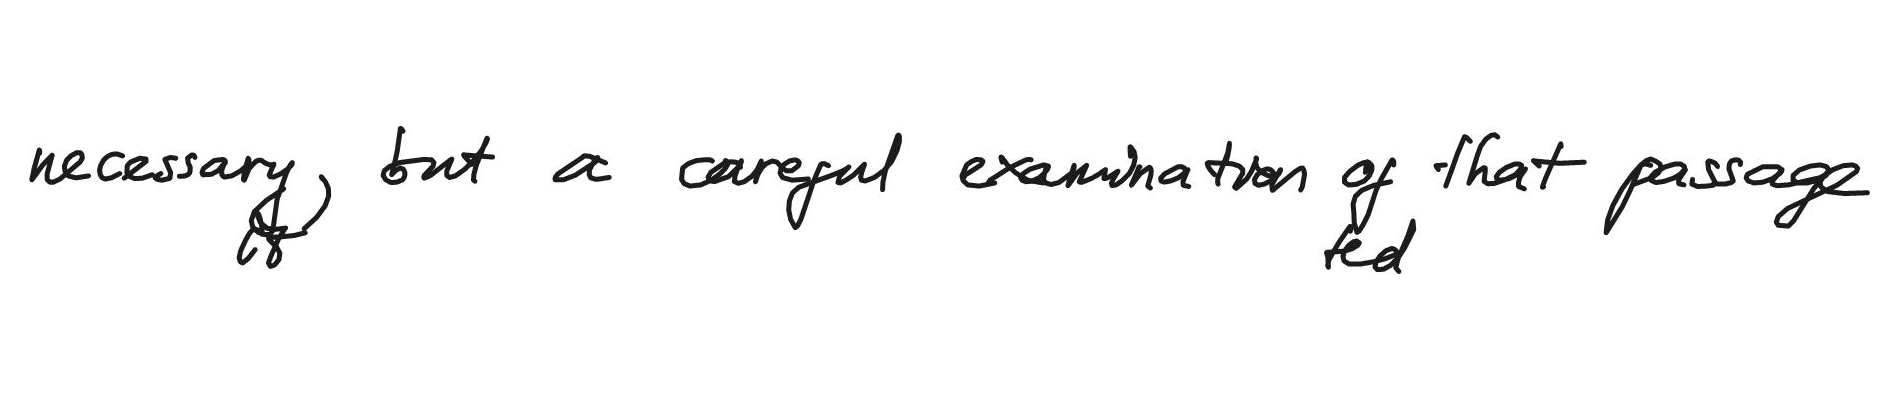 necessary, but a careful examination of that passage
ted